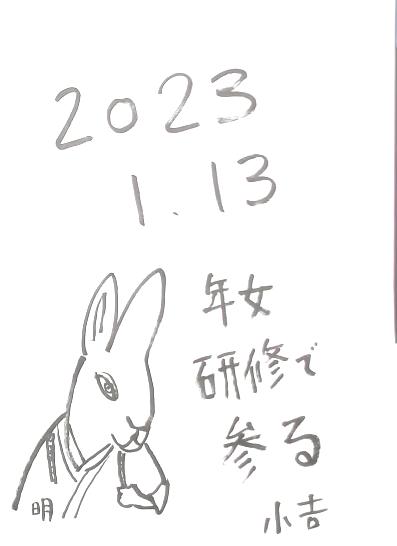 2023
1.13
年女
研修で
参る
小吉
明